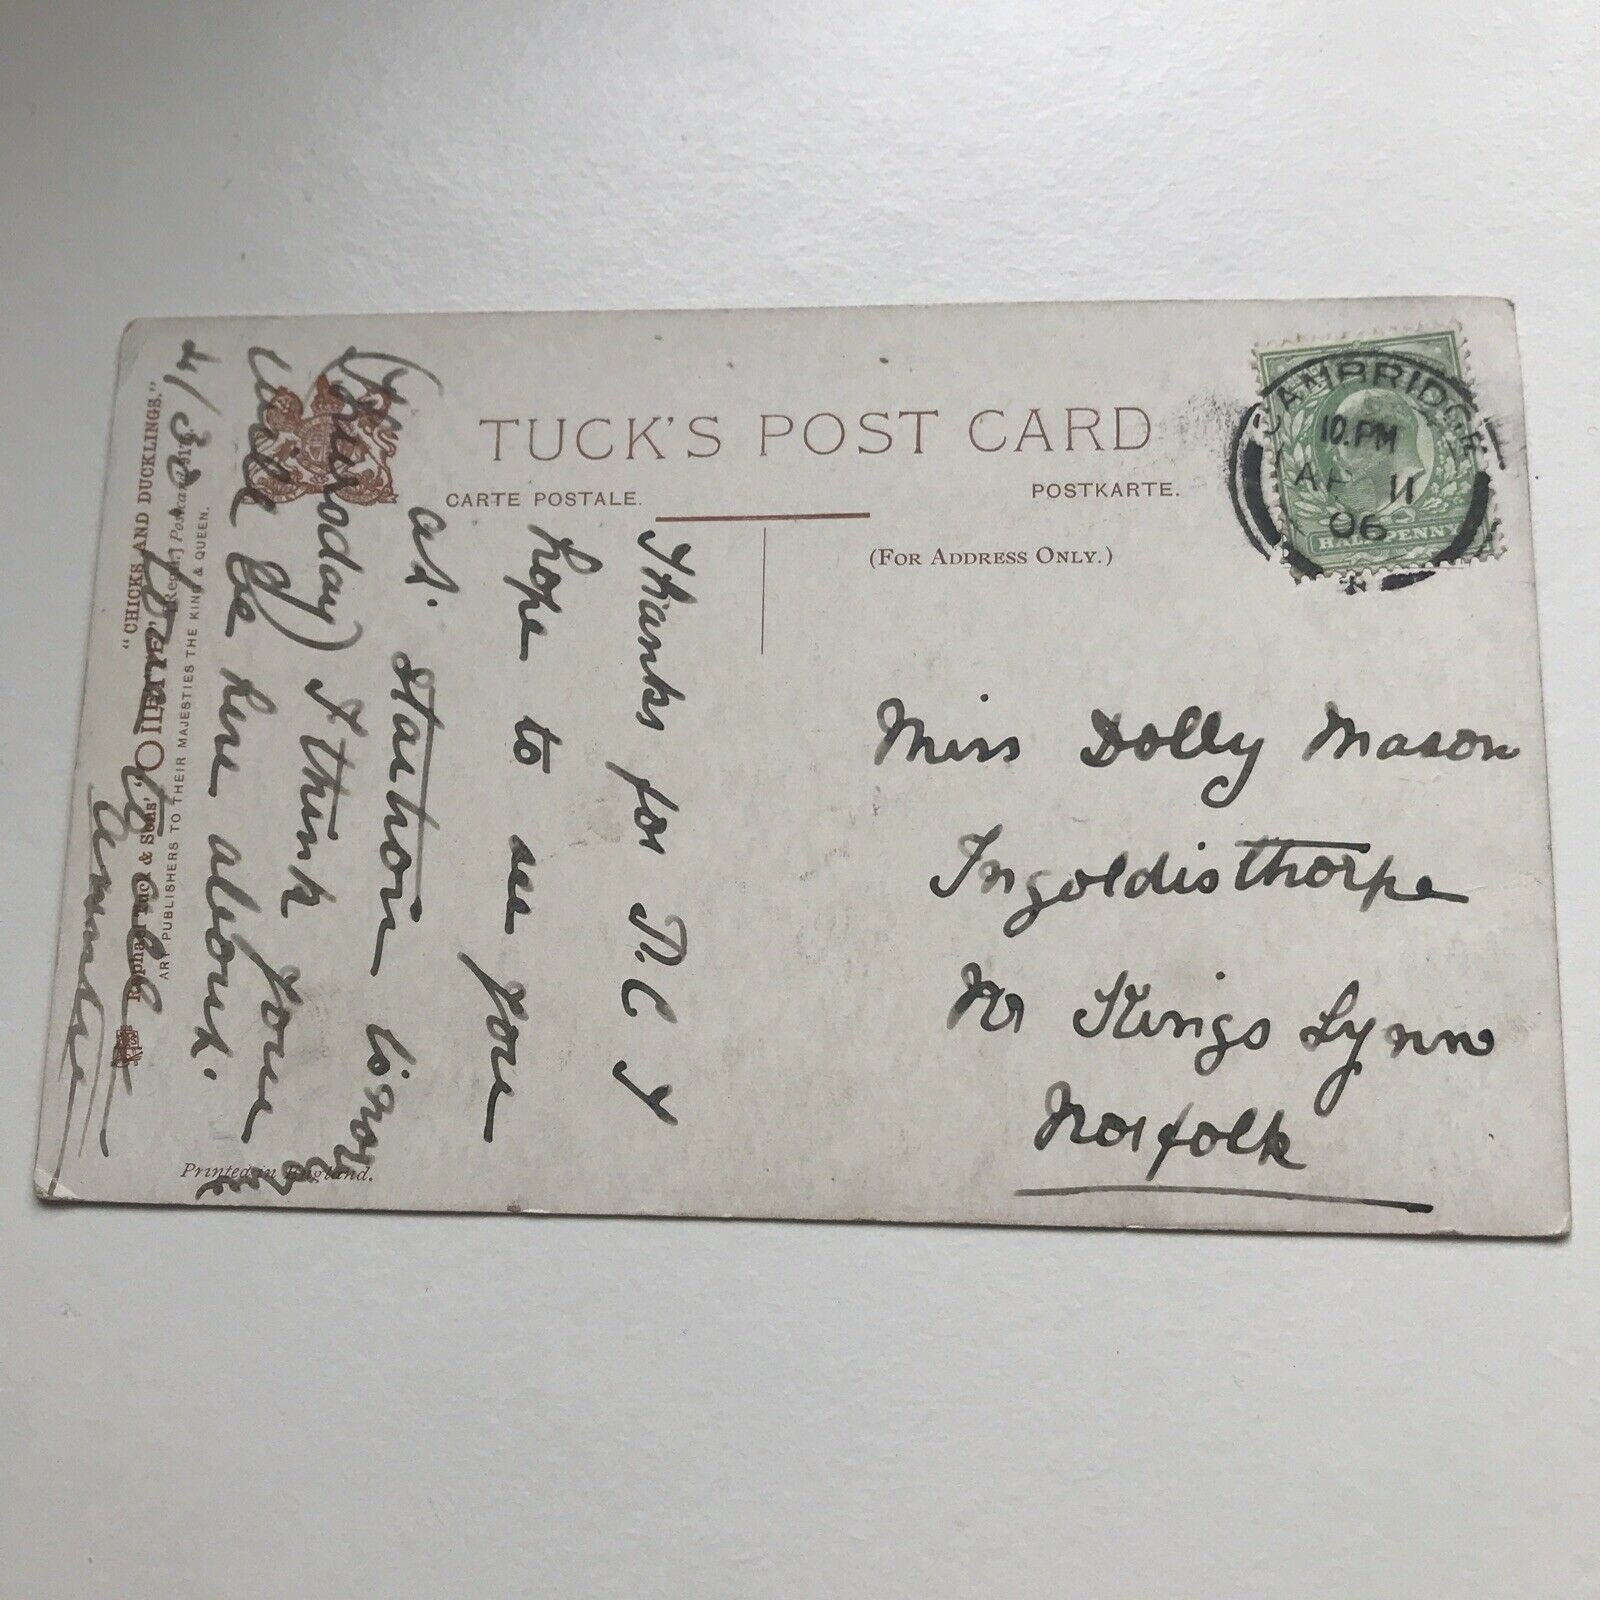 TUCK'S POST CARD
CARTE POSTALE.
POSTKARTE.
(FOR ADDRESS ONLY.)
CAMBRIDGE
10.PM
AP 11
06
HALFPENNY
Miss Dolly Mason
Ingoldisthorpe
Nr Kings Lynn
Norfolk
Thanks for P.C I
hope to see you
at. Station
(Thursday) I think you
will be here about.
4/30.
Auntie
"CHICKS AND DUCKLINGS."
Raphael Tuck & Sons' "OILETTE" [Regd.] Postcard
ART PUBLISHERS TO THEIR MAJESTIES THE KING & QUEEN.
Printed in England.